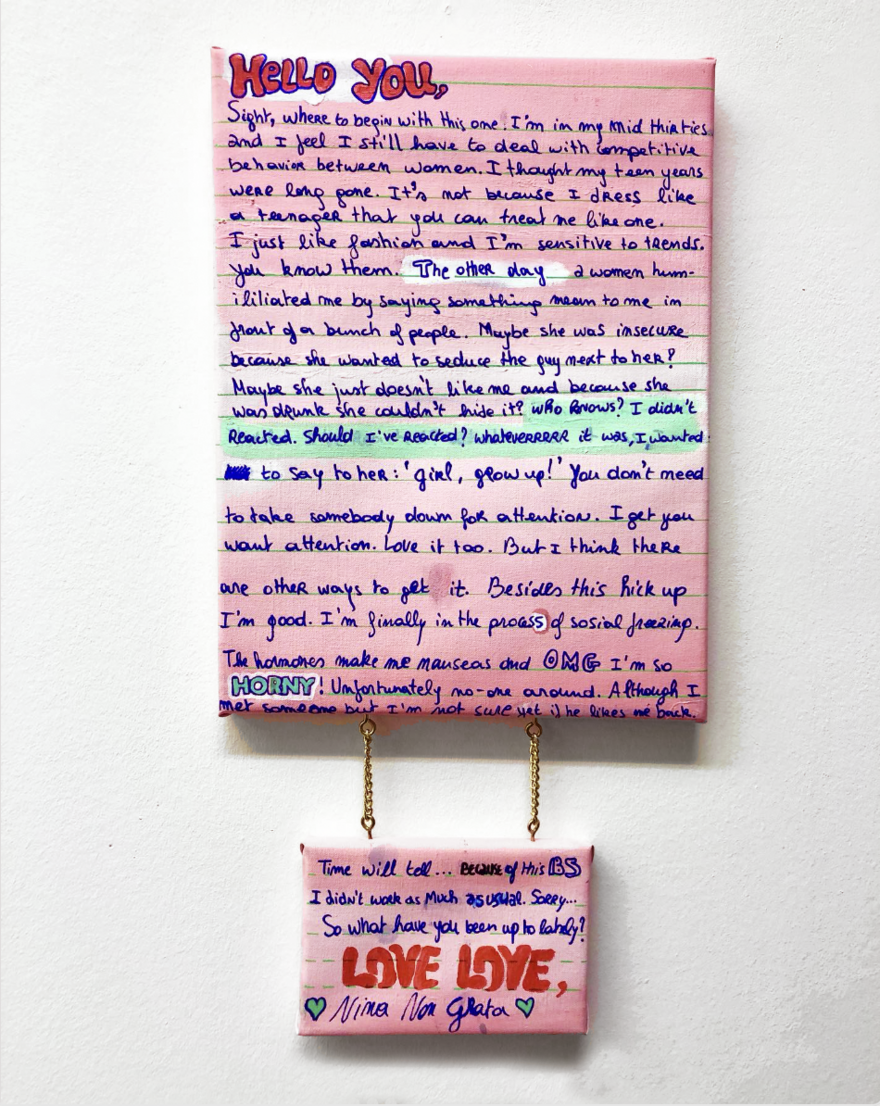 HELLO YOU,
Sight, where to begin with this one. I'm in my mid thirties
and I feel I still have to deal with competitive
behavior between women. I thought my teen years
were long gone. It's not because I dress like
a teenager that you can treat me like one.
I just like fashion and I'm sensitive to trends.
You know them. The other day a women hum-
iliated me by saying something mean to me in
front of a bunch of people. Maybe she was insecure
because she wanted to seduce the guy next to her?
Maybe she just doesn't like me and because she
was drunk she couldn't hide it? Who knows? I didn't
Reacted. Should I've reacted? Whateverrrrr it was, I wanted
to say to her: 'girl, grow up!' You don't need
to take somebody down for attention. I get you
want attention. Love it too. But I think there
are other ways to get it. Besides this hick up
I'm good. I'm finally in the process of sosial freezing.
The hormones make me nauseas and OMG I'm so
HORNY! Unfortunately no-one around. Although I
met someone but I'm not sure yet if he likes me back.
Time will tell... Because of this BS
I didn't work as much as usual. Sorry...
So what have you been up to lately?
LOVE LOVE,
Nina Non Grata